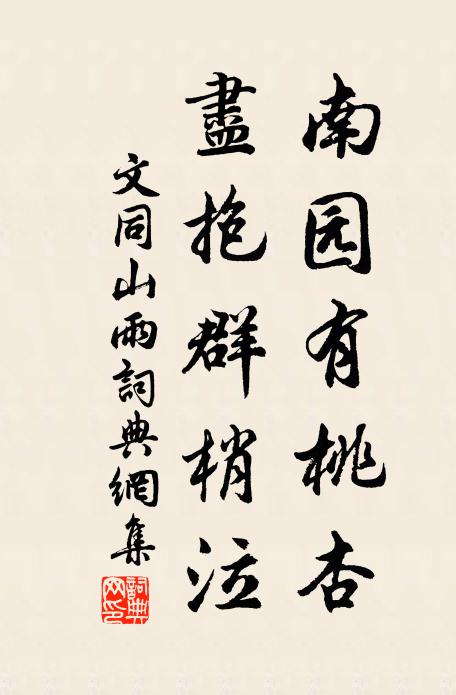 南园有桃杏
盡抱群梢泣
文同山雨詞典網集
詞典
网印